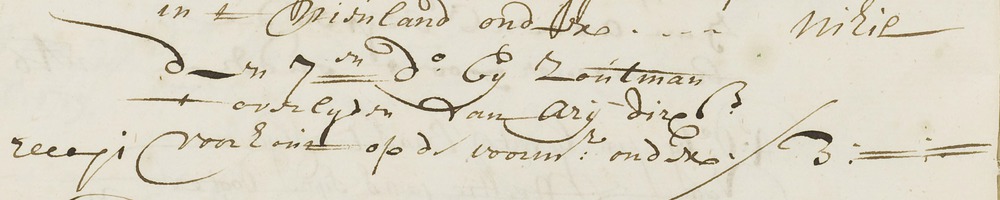 in t Nieuland ond.. nihil
den 7en do by Zoutman
t overlyden van Arij dirx
recepi voor kint op de voorn: ond 3: